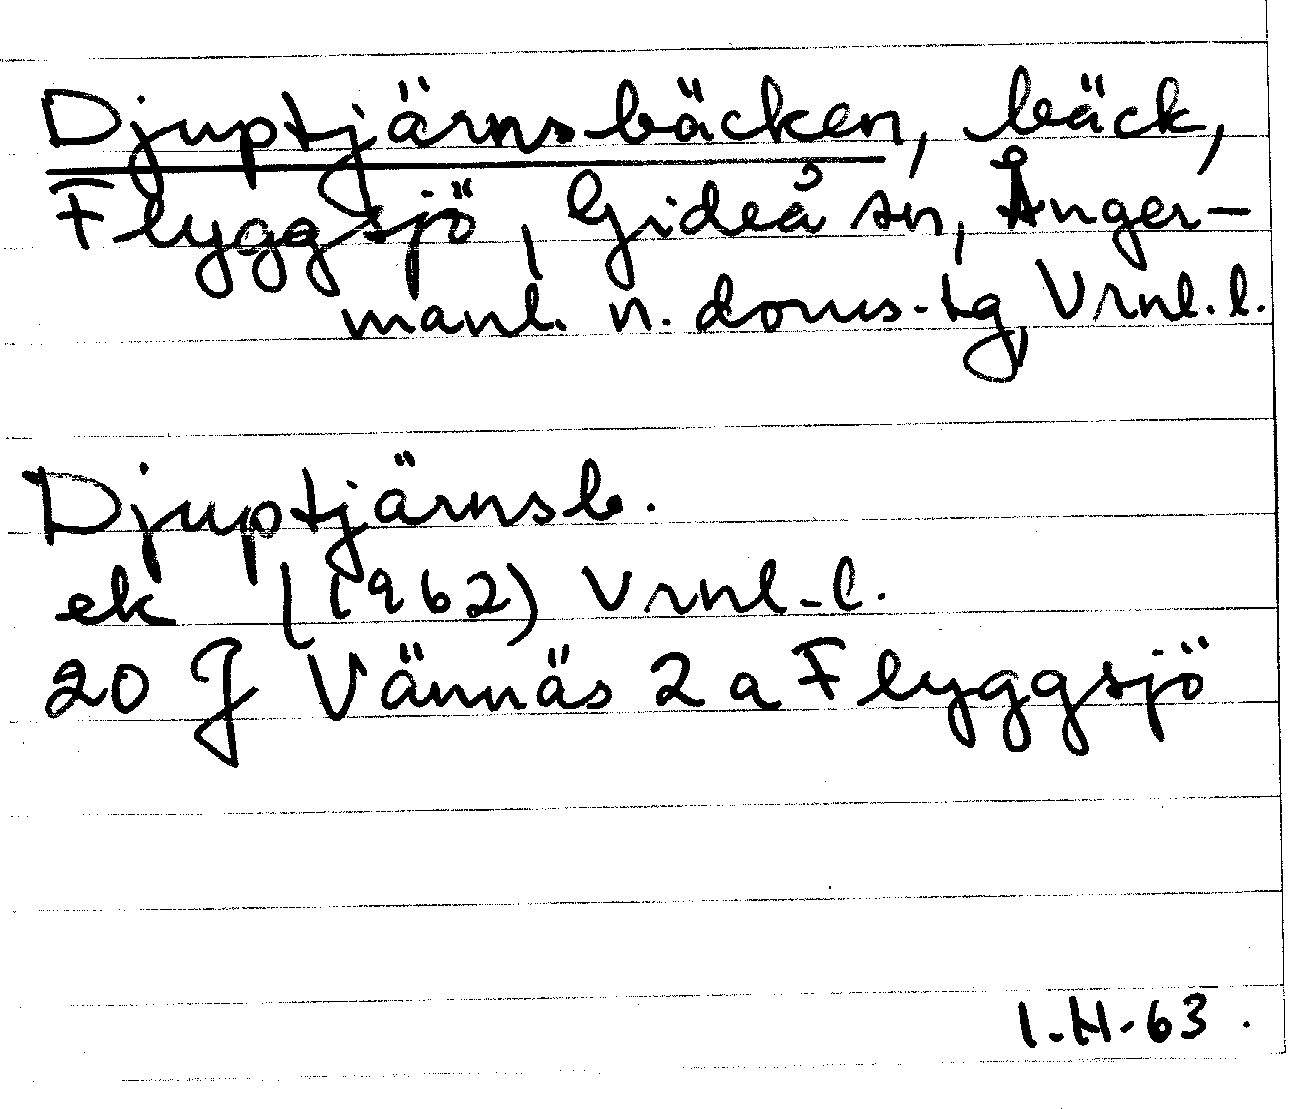 Djuptjärnsbäcken, bäck,
Flyggsjö, Gideå sn, Ånger-
manl. n. doms-tg, Vrnl. l.
Djuptjärnsb.
ek (1962) Vrnl-l.
20 J Vännäs 2 a Flyggsjö
I.H-63.